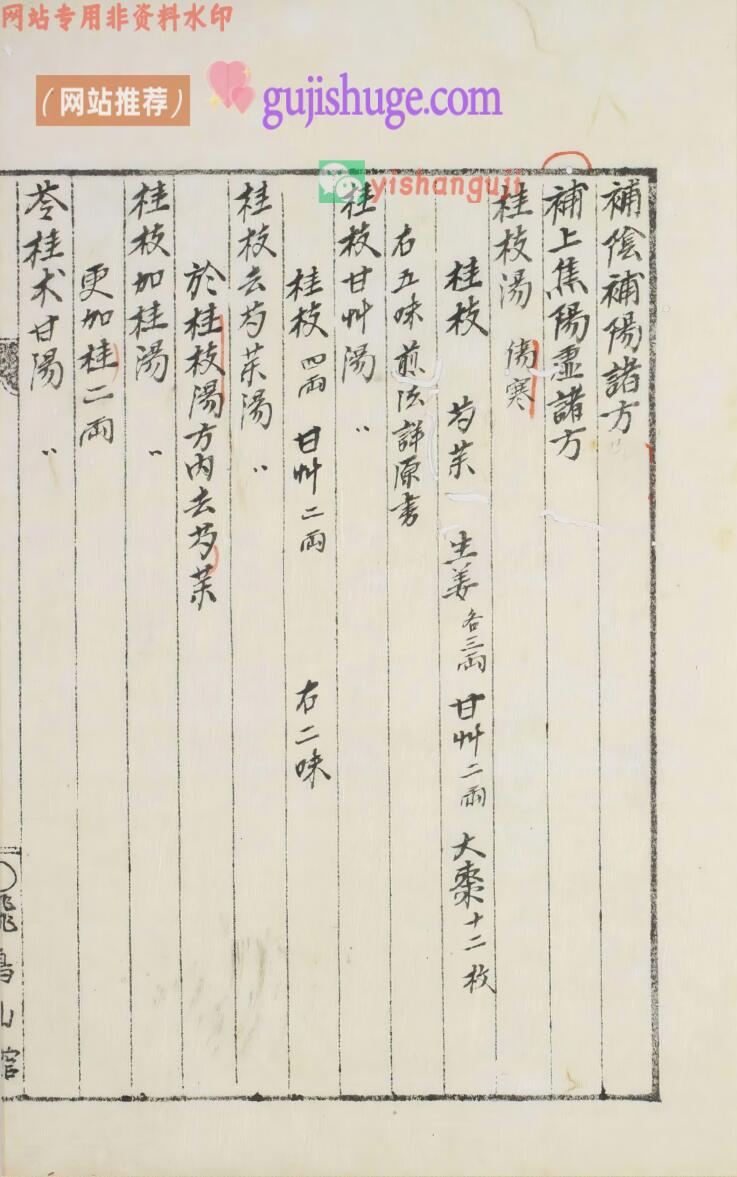 网站专用非资料水印
（网站推荐）
gujishuge.com
yishanguji
補陰補陽諸方
補上焦陽虛諸方
桂枝湯 傷寒
桂枝 芍藥 生姜各三兩 甘艸二兩 大棗十二枚
右五味煎法詳原書
桂枝甘艸湯 〃
桂枝四兩 甘艸二兩 右二味
桂枝去芍藥湯 〃
於桂枝湯方內去芍藥
桂枝加桂湯 〃
更加桂二兩
苓桂术甘湯 〃
山館